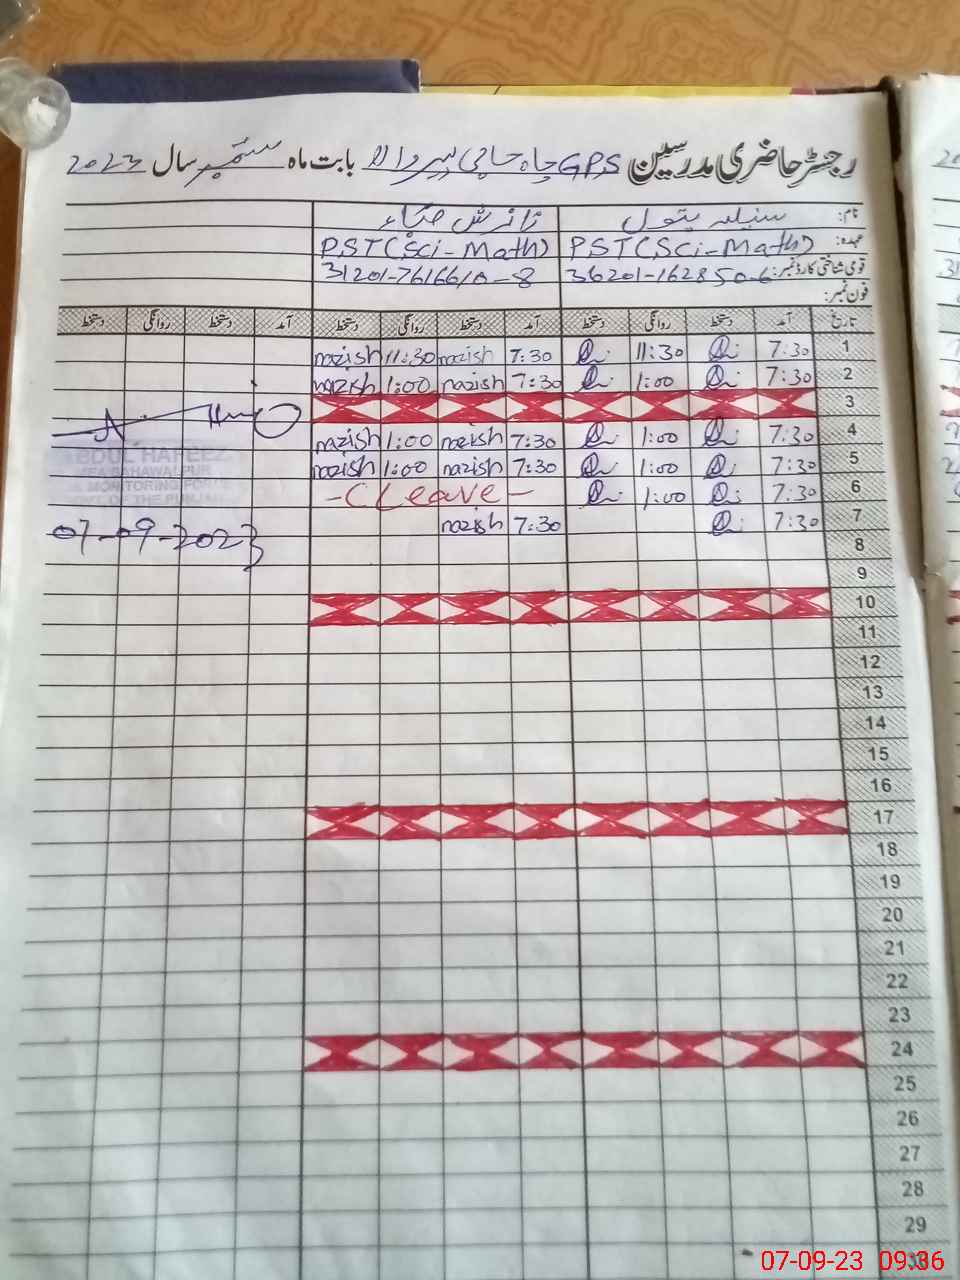 رجسٹر حاضری مدرسین GPS چاہ حاجی پیر والا بابت ماہ ستمبر سال 2023
نام: سنیلہ بتول نازش ضیاء
عہدہ: PST(Sci-Math) PST(Sci-Math)
قومی شناختی کارڈ نمبر: 36201-1628506 31201-7616610-8
فون نمبر:
تاریخ آمد دستخط روانگی دستخط آمد دستخط روانگی دستخط آمد دستخط روانگی دستخط
1 7:30 11:30 7:30 nazish 11:30 nazish
2 7:30 1:00 7:30 nazish 1:00 nazish
3
4 7:30 1:00 7:30 nazish 1:00 nazish
5 7:30 1:00 7:30 nazish 1:00 nazish
6 7:30 1:00 -C Leave-
7 7:30 7:30 nazish
8
9
10
11
12
13
14
15
16
17
18
19
20
21
22
23
24
25
26
27
28
29
30
ABDUL HAFEEZ
MEA BAHAWALPUR
MONITORING FORCE
GOVT OF THE PUNJAB
07-09-2023
07-09-23 09:36